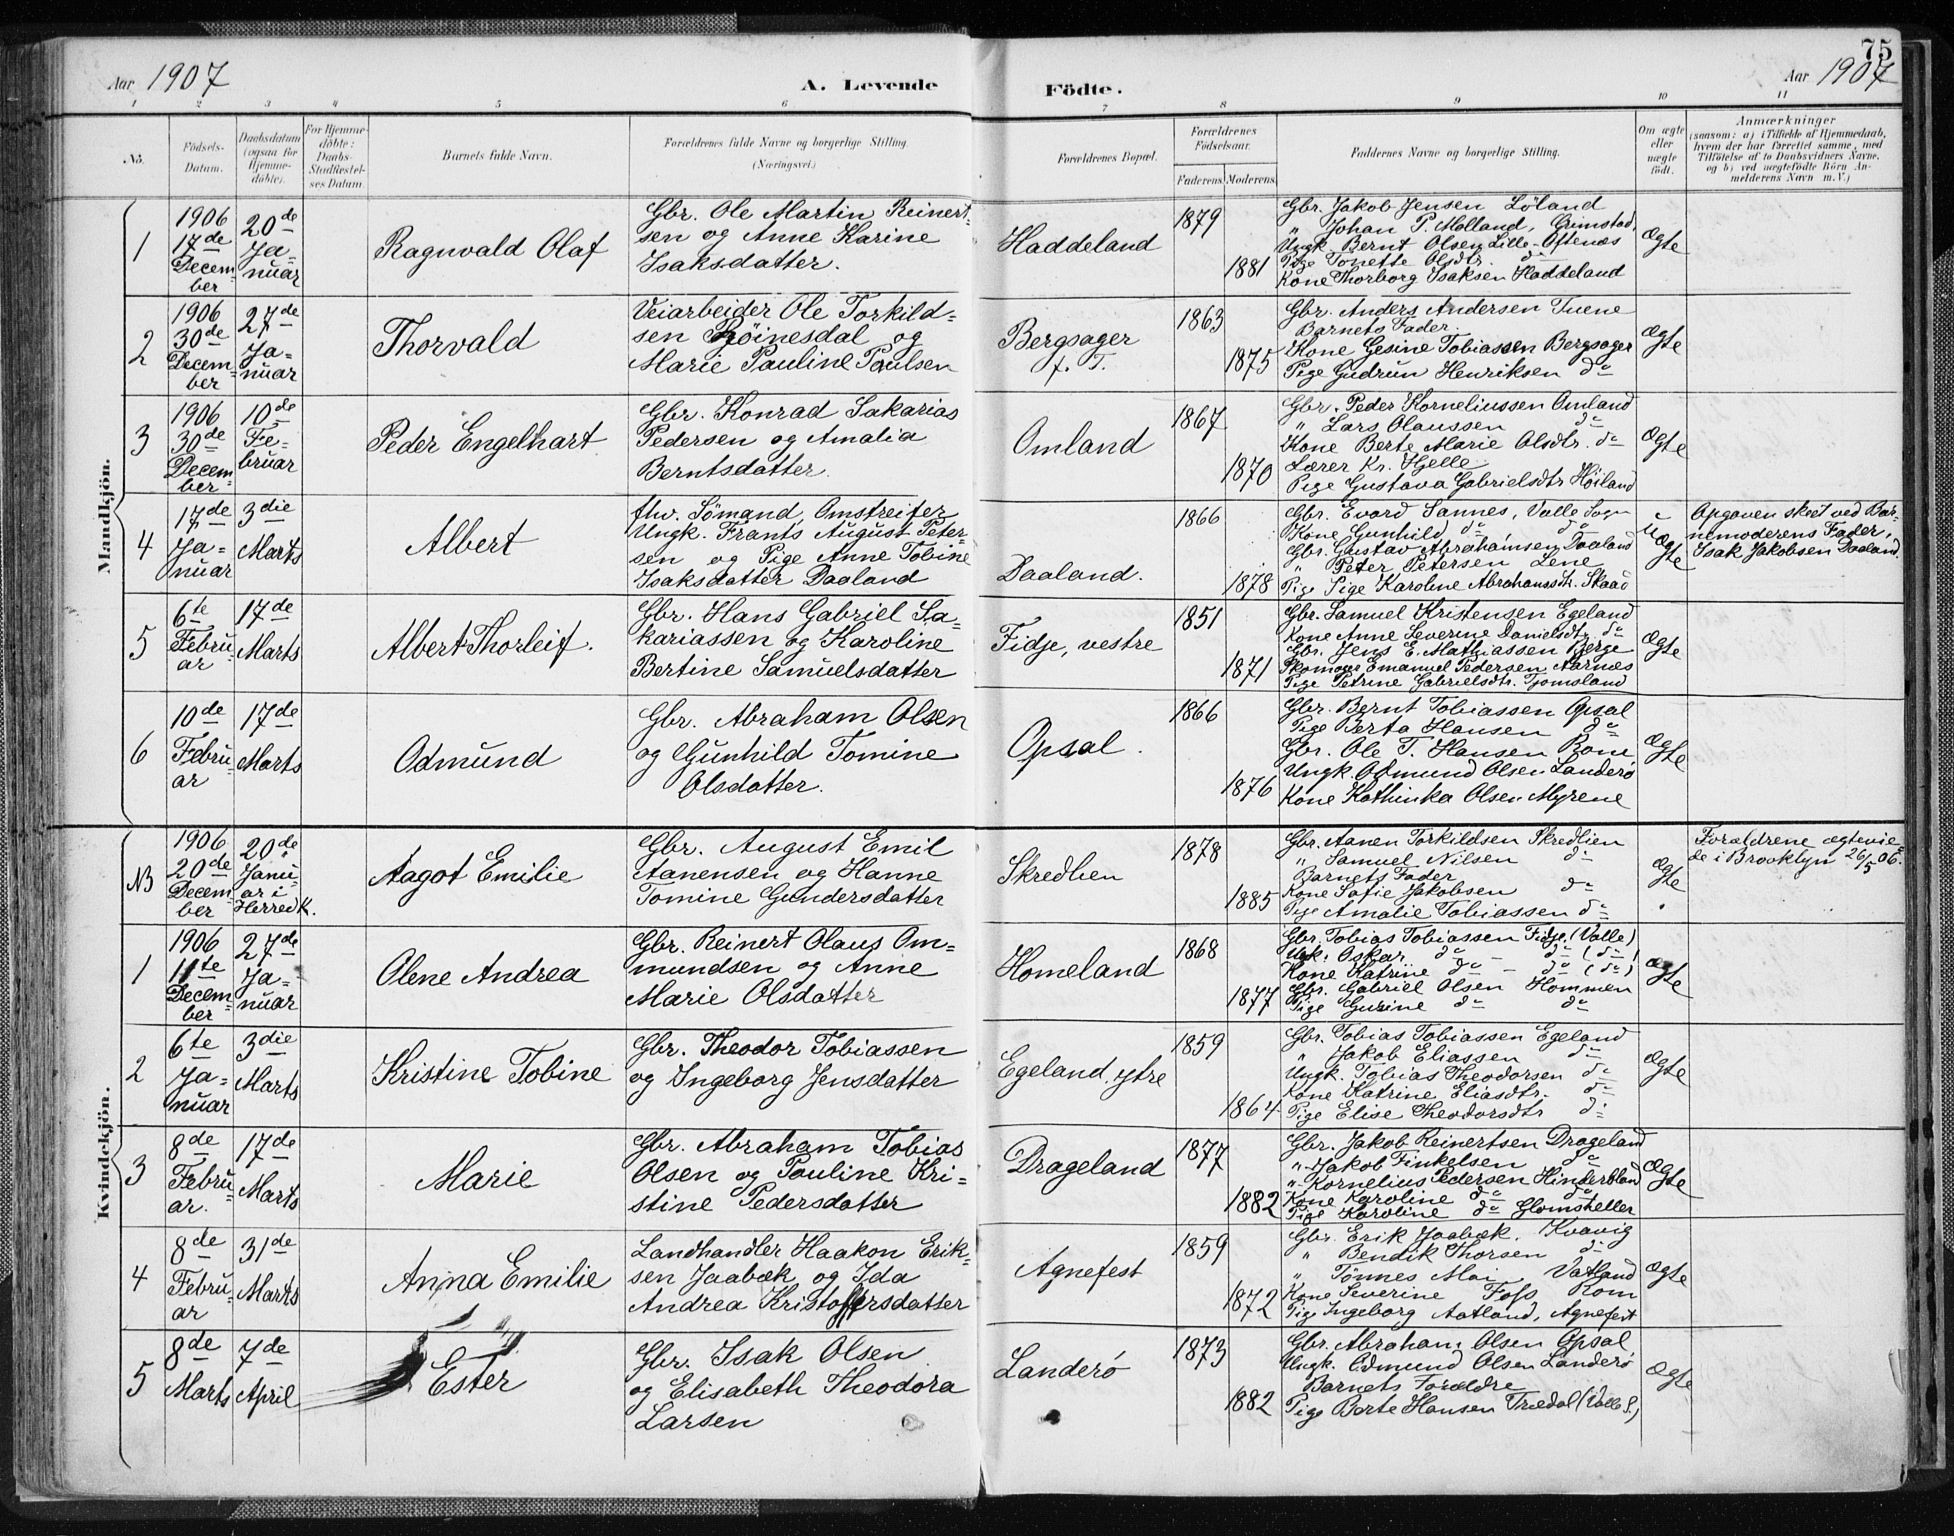 75
Aar 1907 A. Levende Födte. Aar 1907
1 2 3 4 5 6 7 8 9 10 11
No.
Födsels-
Datum.
Daabsdatum
(ogsaa for
Hjemme-
döbte).
For Hjemme-
döbte:
Daabs-
Stadfæstel-
ses Datum.
Barnets fulde Navn.
Forældrenes fulde Navne og borgerlige Stilling.
(Næringsvei.)
Forældrenes Bopæl.
Forældrenes
Födselsaar.
Faderens. Moderens.
Faddernes Navne og borgerlige Stilling.
Om ægte
eller
uægte
födt.
Anmærkninger
(saasom: a) i Tilfælde af Hjemmedaab,
hvem der har forrettet samme, med
Tilföielse af to Daabsvidners Navne,
og b) ved uægtefödte Börn An-
melderens Navn m. V.)
Mandkjön.
1
1906
17de
Decem-
ber
20de
Ja-
nuar
Ragnvald Olaf
Gbr. Ole Martin Reinert-
sen og Anne Karine
Isaksdatter.
Haddeland
1879
1881
Gbr. Jakob Jensen Löland
" Johan P. Molland, Grimstad,
Ungk. Bernt Olsen Lille-Oftenæs
Pige Tonette Olsdtr. do
Kone Thorborg Isaksen Haddeland
Ægte
2
1906
30de
Decem-
ber
27de
Ja-
nuar
Thorvald
Veiarbeider Ole Torkild-
sen Röinesdal og
Marie Pauline Paulsen
Bergsager
f. T.
1863
1875
Gbr. Anders Andersen Tuene
Barnets Fader.
Kone Gesine Tobiassen Bergsager
Pige Gudrun Henriksen do
Ægte
3
1906
30de
Decem-
ber
10de
Fe-
bruar
Peder Engelhart
Gbr. Konrad Sakarias
Pedersen og Amalia
Berntsdatter.
Omland
1867
1870
Gbr. Peder Korneliussen Omland
" Lars Olaussen do
Kone Berte Marie Olsdtr. do
Lærer Kr. Hjelle
Pige Gustava Gabrielsdtr Höiland
Ægte
4
17de
Ja-
nuar
3die
Marts
Albert
fhv. Sömand, Omstreifer
Ungk. Frants August Peter-
sen og Pige Anne Tobine
Isaksdatter Daaland
Daaland.
1866
1878
Gbr. Evard Sannes, Valle Sogn
Kone Gunhild do do
Gbr. Gustav Abrahamsen Daaland
" Peter Petersen Lene
Pige Karoline Abrahamsdtr. Skaad
Uægte
Opgaven skeet ved Bar-
nemoderens Fader,
Isak Jakobsen Daaland.
5
6te
Febru-
ar
17de
Marts
Albert Thorleif.
Gbr. Hans Gabriel Sa-
kariassen og Karoline
Bertine Samuelsdatter
Fidje, vestre
1851
1871
Gbr. Samuel Kristensen Egeland
Kone Anne Severine Danielsdtr. do
Gbr. Jens E. Mathiassen Berge
Skomager Emanuel Pedersen Aarnæs
Pige Petrine Gabrielsdtr. Tjomsland
Ægte
6
10de
Febru-
ar
17de
Marts
Odmund
Gbr. Abraham Olsen
og Gunhild Tomine
Olsdatter.
Opsal.
1866
1876
Gbr. Bernt Tobiassen Opsal
Pige Berta Hansen do
Gbr. Ole T. Hansen Bone
Ungk. Odmund Olsen Landerö
Kone Kathinka Olsen Myrene
Ægte
Kvindekjön.
NB
1906
20de
Decem-
ber
20de
Janu-
ar i
Herredk.
Aagot Emilie
Gbr. August Emil
Aanensen og Hanne
Tomine Gundersdatter
Skredlien
1878
1885
Gbr. Aanen Torkildsen Skredlien
" Samuel Nilsen do
Barnets Fader
Kone Sofie Jakobsen do
Pige Amalie Tobiassen do
Ægte
Forældrene ægtevie-
de i Brooklyn 26/5 06.
1
1906
11te
Decem-
ber
27de
Ja-
nuar
Olene Andrea
Gbr. Reinert Olaus Om-
mundsen og Anne
Marie Olsdatter
Homeland
1868
1877
Gbr. Tobias Tobiassen Fidje (Valle)
Ungk. Oskar do - do (do)
Kone Katrine do - do (do)
Gbr. Gabriel Olsen Hommen
Pige Gurine do do
Ægte
2
6te
Ja-
nuar
3die
Marts
Kristine Tobine
Gbr. Theodor Tobiassen
og Ingeborg Jensdatter
Egeland, ytre
1859
1864
Gbr. Tobias Tobiassen Egeland
" Jakob Eliassen do
Ungk. Tobias Theodorsen do
Kone Katrine Eliasdtr. do
Pige Elise Theodorsdtr do
Ægte
3
8de
Febru-
ar.
17de
Marts
Marie
Gbr. Abraham Tobias
Olsen og Pauline Kri-
stine Pedersdatter
Drageland
1877
1882
Gbr. Jakob Reinertsen Drageland
" Jakob Finkelsen do
" Kornelius Pedersen
Kone Karoline do do
Pige Karoline do Glomsheller
Ægte
4
8de
Febru-
ar
31de
Marts
Anna Emilie
Landhandler Haakon Erik-
sen Jaabæk og Ida
Andrea Kristoffersdatter
Agnefest
1859
1872
Gbr. Erik Jaabæk, Kvavig
" Bendik Thorsen do
" Tönnes Moi Vatland
Kone Severine Foss Rom
Pige Ingeborg Aatland, Agnefest
Ægte
5
8de
Marts
7de
April
Ester
Gbr. Isak Olsen
og Elisabeth Theodora
Larsen
Landerö
1873
1882
Gbr. Abraham Olsen Opsal
Ungk. Odmund Olsen Landerö
Barnets Forældre
Pige Berte Hansen Trædal (Valle S.)
Ægte